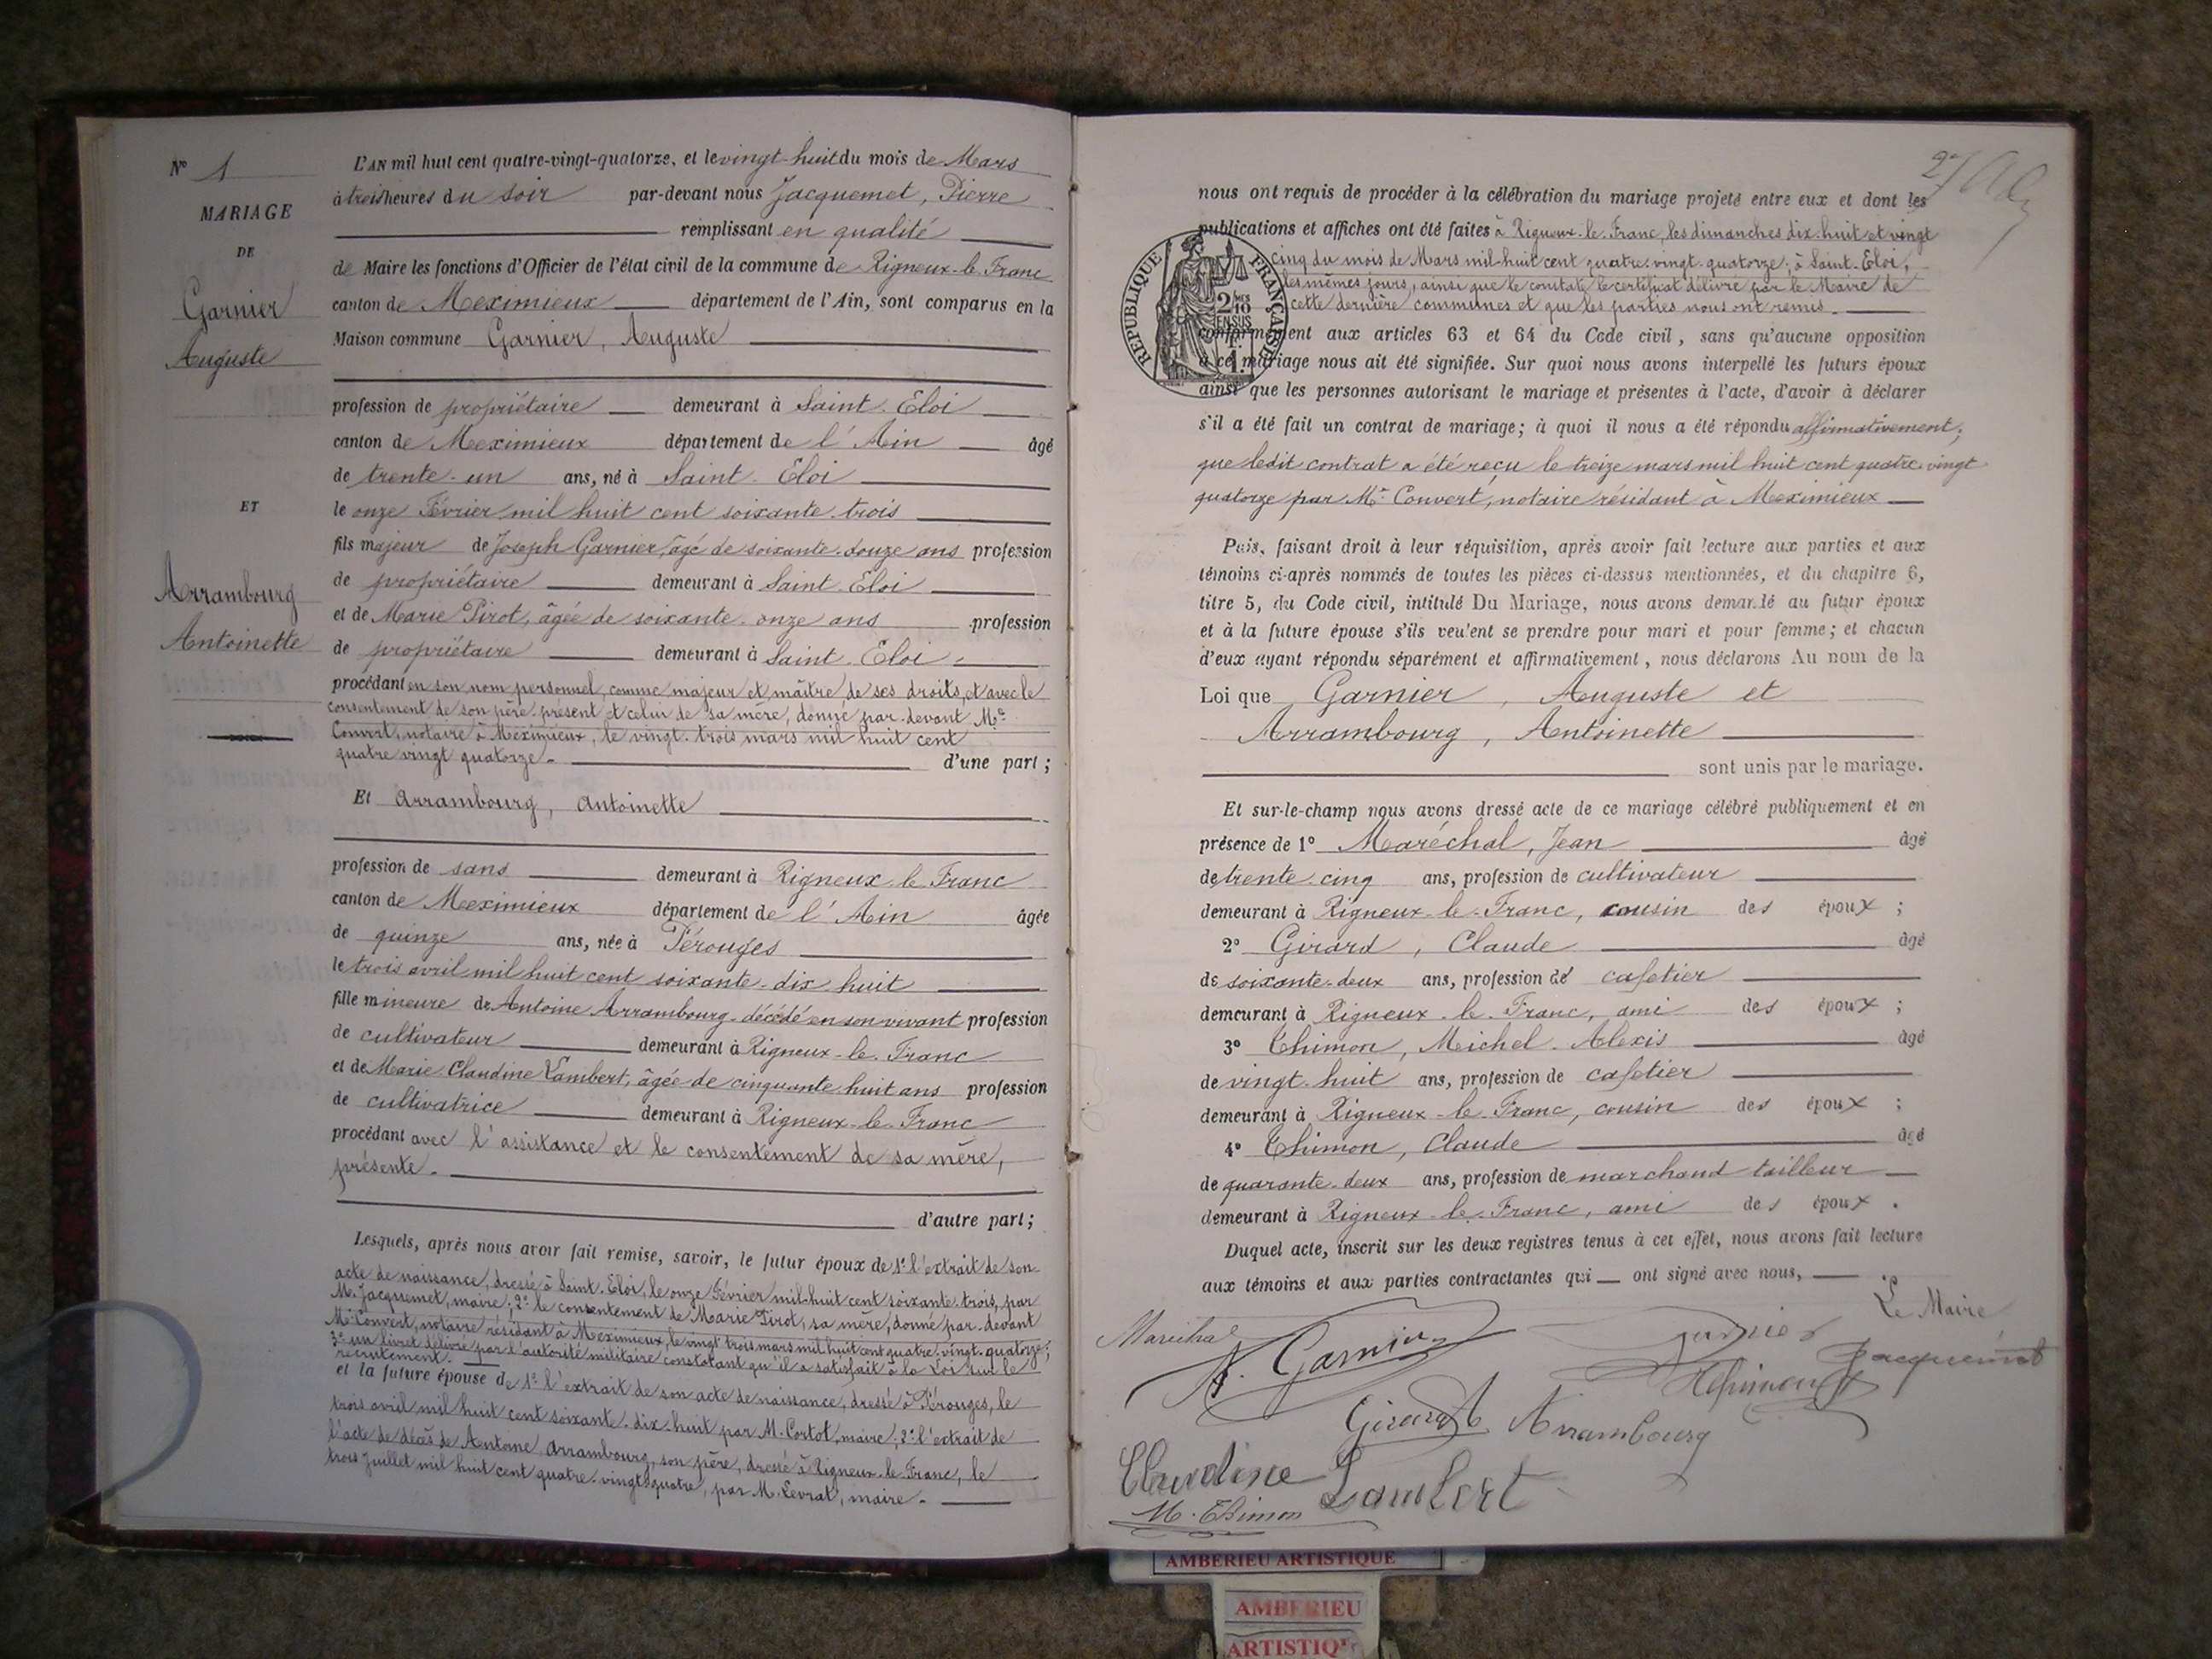 N° 1
MARIAGE
DE
Garnier
Auguste
ET
Arrambourg
Antoinette
L'AN mil huit cent quatre-vingt-quatorze, et le vingt-huit du mois de Mars
à trois heures du soir par-devant nous Jacquemet, Pierre
remplissant en qualité
de Maire les fonctions d'Officier de l'état civil de la commune de Rigneux-le-Franc
canton de Meximieux département de l'Ain, sont comparus en la
Maison commune Garnier, Auguste
profession de propriétaire demeurant à Saint-Eloi
canton de Meximieux département de l'Ain âgé
de trente-un ans, né à Saint-Eloi
le onze Février mil huit cent soixante-trois
fils majeur de Joseph Garnier, âgé de soixante-douze ans profession
de propriétaire demeurant à Saint-Eloi
et de Marie Pirot, âgée de soixante-onze ans profession
de propriétaire demeurant à Saint-Eloi,
procédant en son nom personnel, comme majeur et maître de ses droits, et avec le
consentement de son père présent et celui de sa mère, donné par-devant Me
Convert, notaire à Meximieux, le vingt-trois mars mil huit cent
quatre vingt quatorze. d'une part;
Et Arrambourg, Antoinette
profession de sans demeurant à Rigneux-le-Franc
canton de Meximieux département de l'Ain âgée
de quinze ans, née à Pérouges
le trois avril mil huit cent soixante-dix-huit
fille mineure de Antoine Arrambourg-décédé en son vivant profession
de cultivateur demeurant à Rigneux-le-Franc
et de Marie-Claudine Lambert, âgée de cinquante-huit ans profession
de cultivatrice demeurant à Rigneux-le-Franc
procédant avec l'assistance et le consentement de sa mère,
présente.
d'autre part;
Lesquels, après nous avoir fait remise, savoir, le futur époux de 1° l'extrait de son
acte de naissance, dressé à Saint-Eloi, le onze Février mil-huit cent soixante-trois, par
M. Jacquemet, maire; 2° le consentement de Marie Pirot, sa mère, donné par-devant
Me Convert, notaire résidant à Meximieux, le vingt trois mars mil huit cent quatre-vingt-quatorze;
3° un livret délivré par l'autorité militaire constatant qu'il a satisfait à la Loi sur le
recrutement.
et la future épouse de 1° l'extrait de son acte de naissance, dressé à Pérouges, le
trois avril mil huit cent soixante-dix-huit par M. Cortot, maire; 2° l'extrait de
l'acte de décès de Antoine Arrambourg, son père, dressé à Rigneux-le-Franc, le
trois Juillet mil huit cent quatre-vingt-quatre, par M. Levrat, maire.
2e
nous ont requis de procéder à la célébration du mariage projeté entre eux et dont les
publications et affiches ont été faites à Rigneux-le-Franc, les dimanches dix-huit et vingt
cinq du mois de Mars mil-huit cent quatre-vingt-quatorze; à Saint-Eloi,
les mêmes jours, ainsi que le constate le certificat délivré par le Maire de
cette dernière communes et que les parties nous ont remis.
RÉPUBLIQUE FRANÇAISE
2 MES 10
EN SUS
1f
conformément aux articles 63 et 64 du Code civil, sans qu'aucune opposition
à ce mariage nous ait été signifiée. Sur quoi nous avons interpellé les futurs époux
ainsi que les personnes autorisant le mariage et présentes à l'acte, d'avoir à déclarer
s'il a été fait un contrat de mariage; à quoi il nous a été répondu affirmativement;
que ledit contrat a été reçu le treize mars mil huit cent quatre-vingt
quatorze par Me Convert, notaire résidant à Meximieux
Puis, faisant droit à leur réquisition, après avoir fait lecture aux parties et aux
témoins ci-après nommés de toutes les pièces ci-dessus mentionnées, et du chapitre 6,
titre 5, du Code civil, intitulé Du Mariage, nous avons demandé au futur époux
et à la future épouse s'ils veulent se prendre pour mari et pour femme; et chacun
d'eux ayant répondu séparément et affirmativement, nous déclarons Au nom de la
Loi que Garnier, Auguste et
Arrambourg, Antoinette
sont unis par le mariage.
Et sur-le-champ nous avons dressé acte de ce mariage célébré publiquement et en
présence de 1° Maréchal, Jean âgé
de trente-cinq ans, profession de cultivateur
demeurant à Rigneux-le-Franc, cousin des époux;
2° Girard, Claude âgé
de soixante-deux ans, profession de cafetier
demeurant à Rigneux-le-Franc, ami des époux;
3° Thimon, Michel-Alexis âgé
de vingt-huit ans, profession de cafetier
demeurant à Rigneux-le-Franc, cousin des époux;
4° Thimon, Claude âgé
de quarante-deux ans, profession de marchand tailleur
demeurant à Rigneux-le-Franc, ami des époux.
Duquel acte, inscrit sur les deux registres tenus à cet effet, nous avons fait lecture
aux témoins et aux parties contractantes qui ont signé avec nous,
Le Maire
Maréchal
A. Garnier
Garnier
Jacquemet
Thimon
Girard
Arrambourg
Claudine Lambert
M. Thimon
AMBERIEU ARTISTIQUE
AMBERIEU
ARTISTIQU